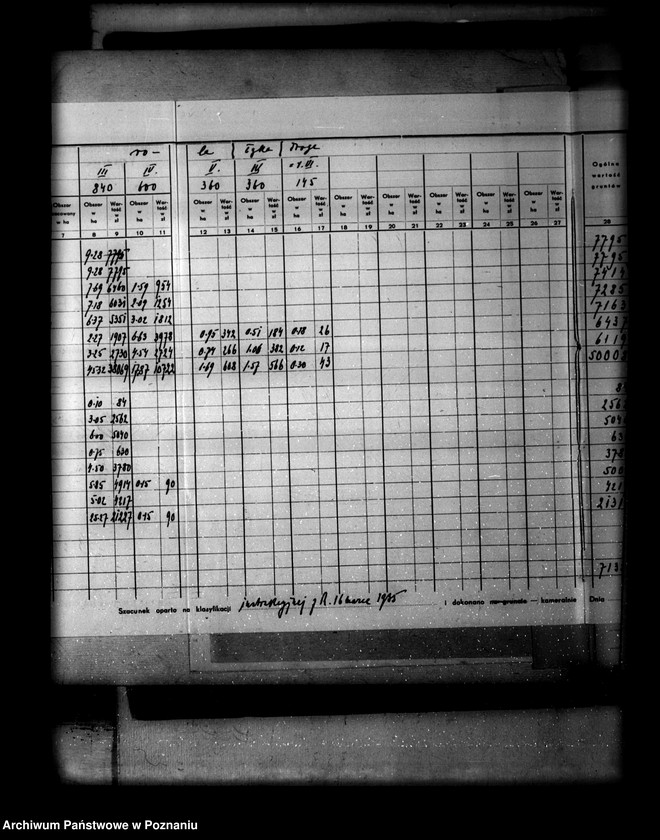 ro- la łąka droga
III IV. V. IV
840 600 360 360 145
Obszar w ha Wartość w zł Obszar w ha Wartość w zł Obszar w ha Wartość w zł Obszar w ha Wartość w zł Obszar w ha Wartość w zł Obszar w ha Wartość w zł Obszar w ha Wartość w zł Obszar w ha Wartość w zł Obszar w ha Wartość w zł Obszar w ha Wartość w zł Ogólna wartość gruntów
7 8 9 10 11 12 13 14 15 16 17 18 19 20 21 22 23 24 25 26 27 28
9.28 7795 7795
9.28 7795 7795
7.69 6460 1.59 954 7414
7.18 6031 2.09 1254 7285
6.37 5351 3.02 1812 7163
2.27 1907 6.63 3978 0.95 342 0.51 184 0.18 26 6437
3.25 2730 4.54 2724 0.74 266 1.06 382 0.12 17 6119
45.32 38069 17.87 10722 1.69 608 1.57 566 0.30 43 50008
0.10 84 84
3.05 2562 2562
6.00 5040 5040
0.75 630 630
4.50 3780 3780
5.85 4914 0.15 90 500
5.02 4217 421
25.27 21227 0.15 90 2131
713
Szacunek oparto na klasyfikacji z d. 16 marca 1935 i dokonano na gruncie — kameralnie Dnia
Archiwum Państwowe w Poznaniu